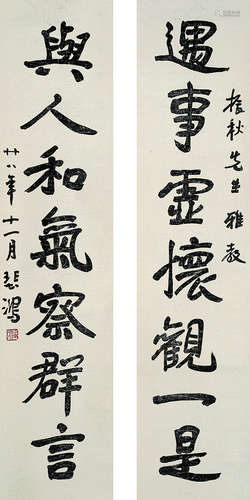 遇事虛懷觀一是
振秋先生雅教
與人和氣察群言
廿八年十一月悲鴻